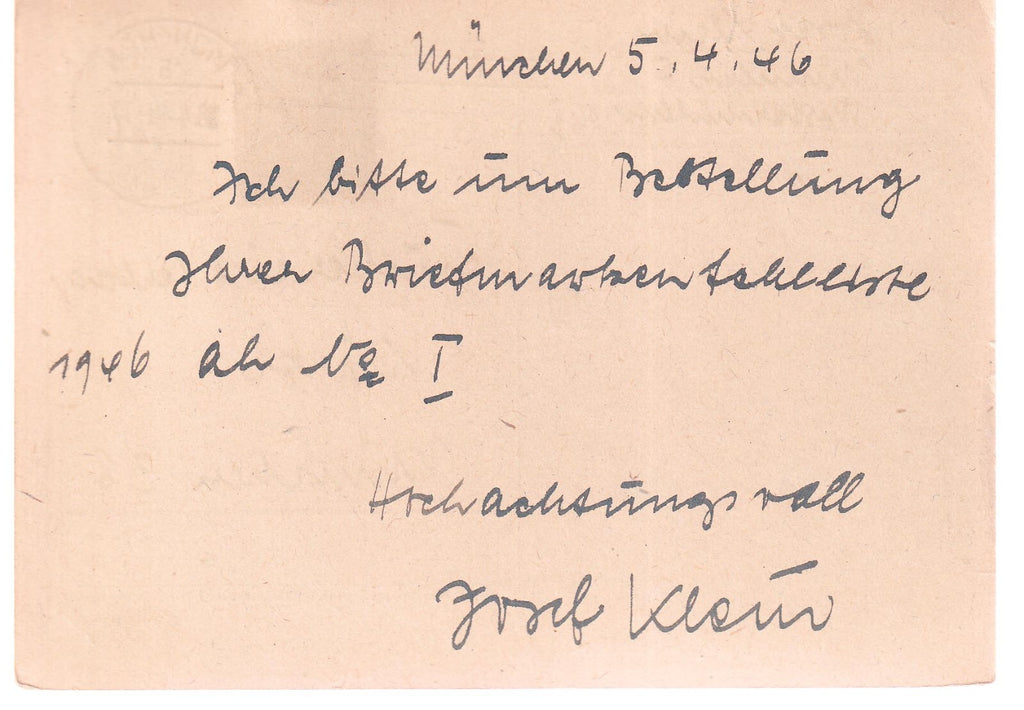 München 5.4.46
Ich bitte um Bestellung
Ihrer Briefmarkenfehlliste
1946 ab No I
Hochachtungsvoll
Josef